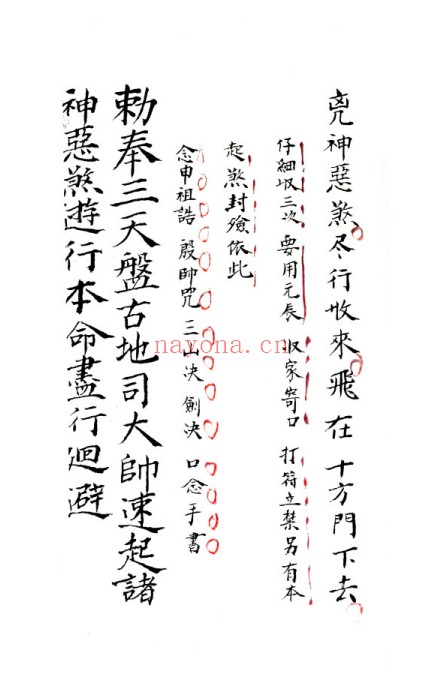 兇神惡煞尽行收來飛在十方門下去
仔細収三次 要用元辰 収家寄口 打符立禁另有本
起煞封殮依此
念申祖誥 殷帥咒 三山决 劍決 口念手書
勅奉三天盤古地司大帥速起諸
神惡煞遊行本命盡行迴避
nayona.cn